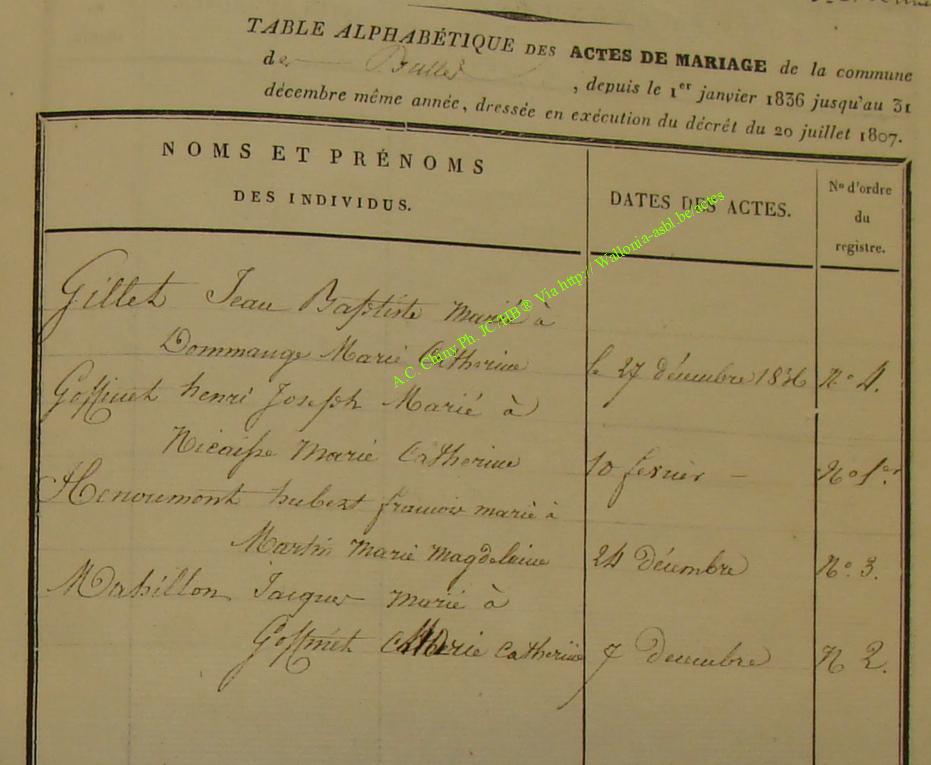 TABLE ALPHABÉTIQUE DES ACTES DE MARIAGE de la commune
de Bulles, depuis le 1er janvier 1836 jusqu'au 31
décembre même année, dressée en exécution du décrêt du 20 juillet 1807.
NOMS ET PRÉNOMS
DES INDIVIDUS.
DATES DES ACTES.
No d'ordre
du
registre.
Gillet Jean Baptiste marié à
Dommange Marie Catherine le 27 décembre 1836 No 4.
Goffinet henri Joseph Marié à
Nicaisse Marie Catherine 10 fevrier — No 1er
Henoumont hubert francois marié à
Martin Marie Magdeleine 24 Décembre No. 3.
Mabillon Jacques Marié à
Goffinet Marie Catherine 7 decembre N 2.
A.C. Chiny Ph. JC/HB ® Via http:// Wallonia-asbl.be/actes